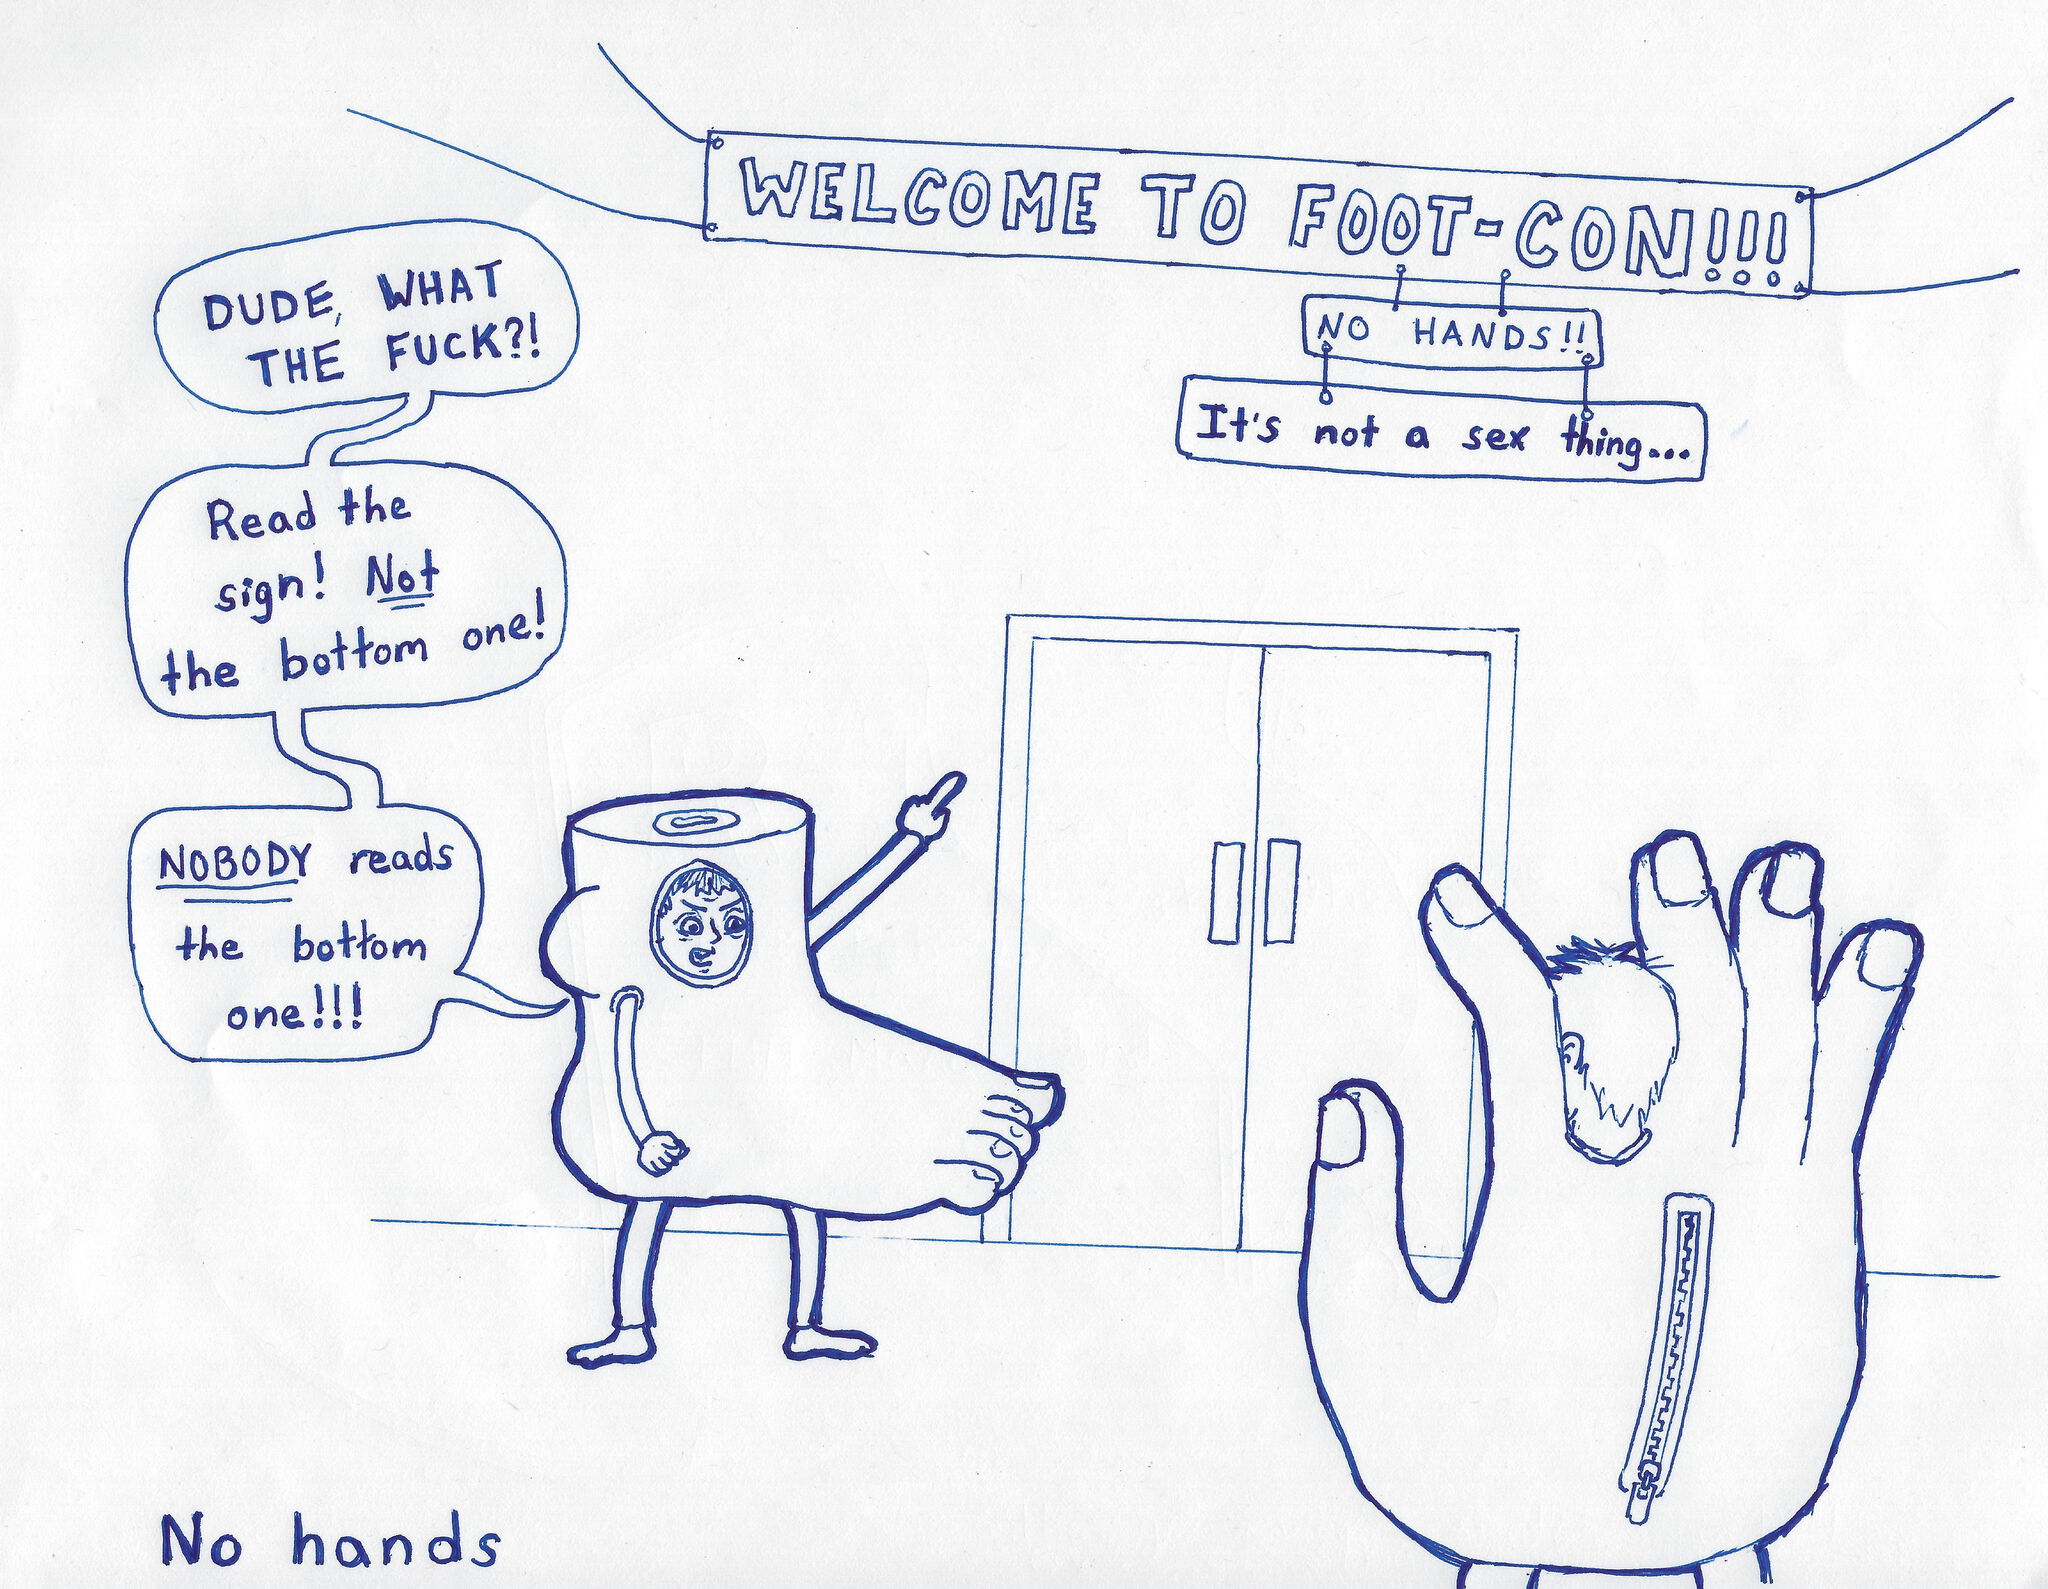 WELCOME TO FOOT-CON!!!
NO HANDS!!
It's not a sex thing...
DUDE, WHAT
THE FUCK?!
Read the
sign! Not
the bottom one!
NOBODY reads
the bottom
one!!!
No hands